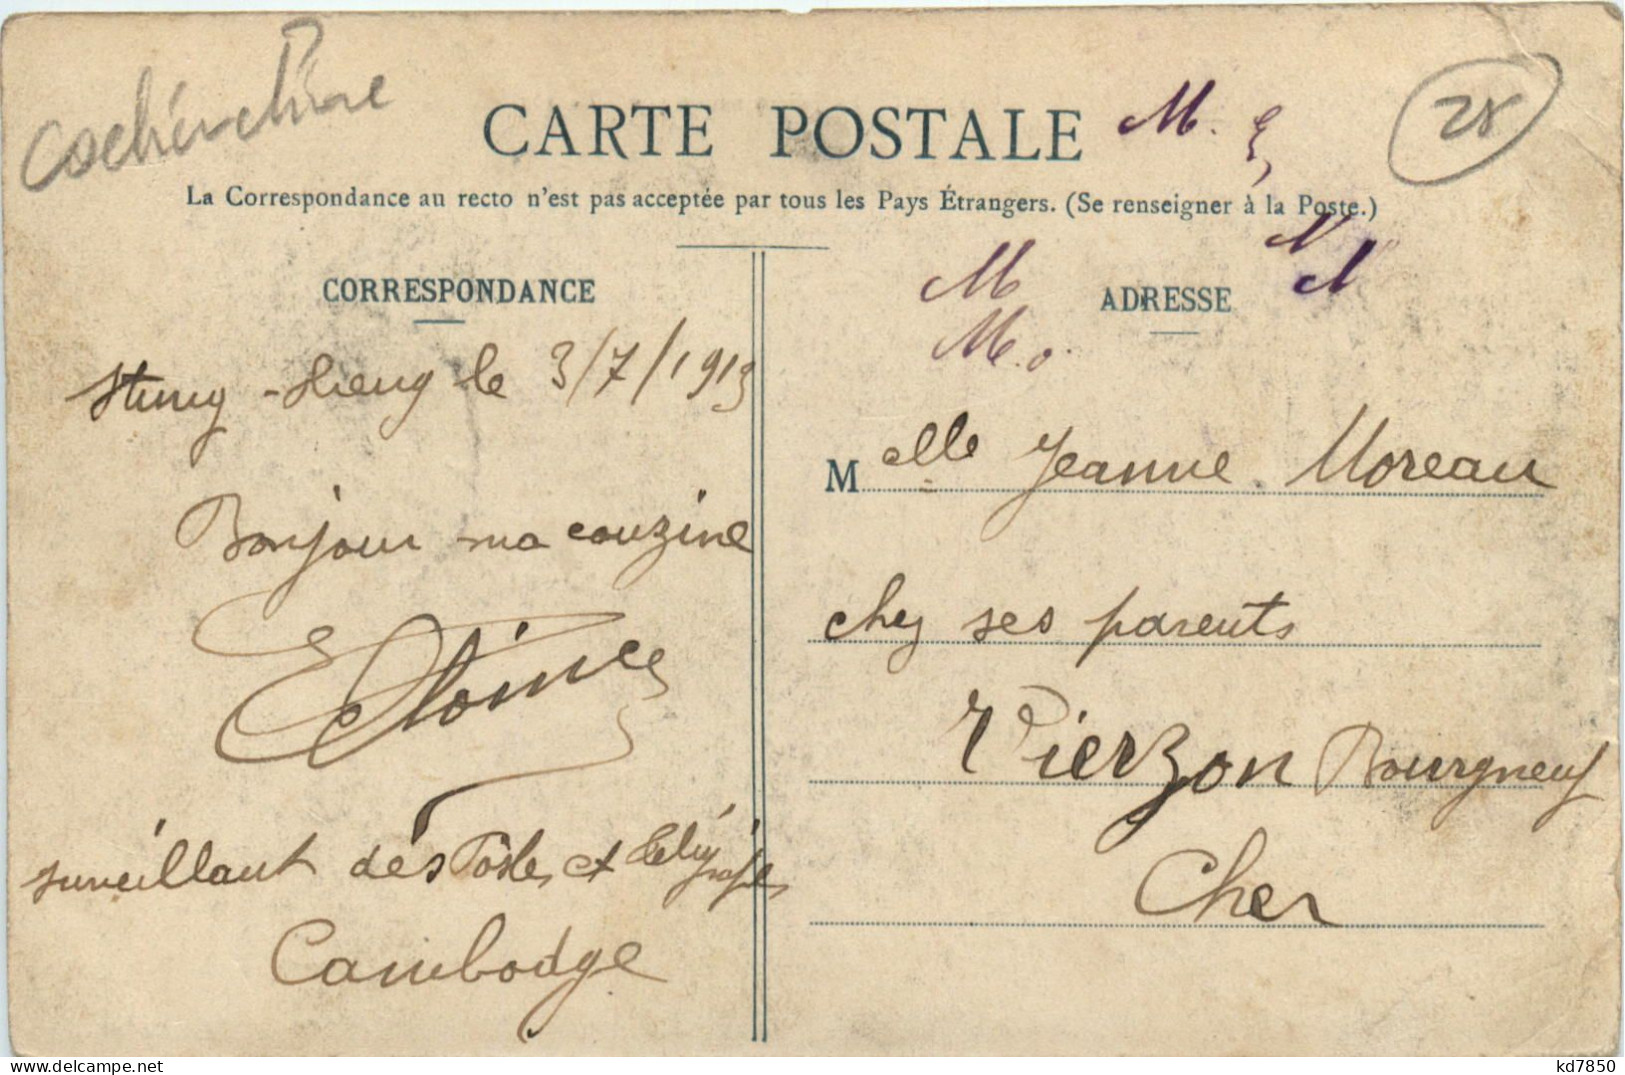 cochinchine
CARTE POSTALE
M.
28
La Correspondance au recto n'est pas acceptée par tous les Pays Étrangers. (Se renseigner à la Poste.)
CORRESPONDANCE
ADRESSE
M
M
Stung-Streng le 3/7/1913
Melle Jeanne Moreau
Bonjour ma couzine
chez ses parents
Vierzon Bourgneuf
surveillant des Postes et Télégraphes
Cher
Cambodge
kd7850